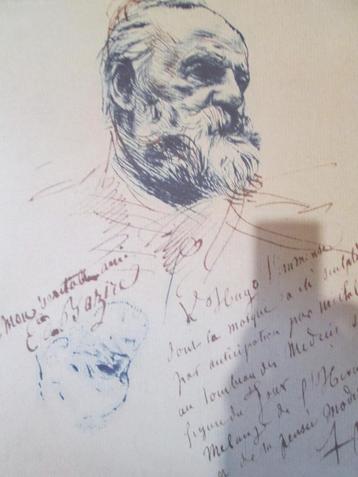 mon véritable ami
E. Bazire
V. Hugo l'immense
dont le masque a été sculpté
par anticipation par Michel
au tombeau des Medicis
figure du Jour
Mélange de l'Herc
de la pensée Mod